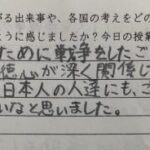 がる出来事や、各国の考えをど
ように感じましたか?今日の授業
ために戦争をしたこ
徳心が深く関係し
日本人の人達にも、こ
いなと思いました。